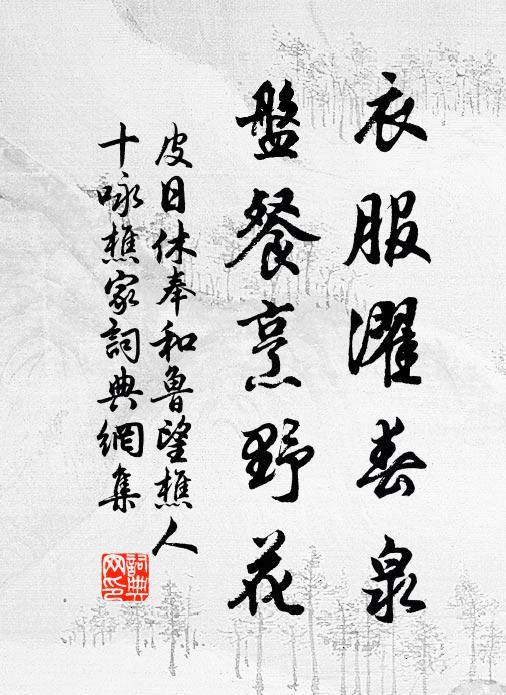 衣服濯春泉
盤餐烹野花
皮日休奉和魯望樵人
十咏樵家詞典網集
詞典
网印